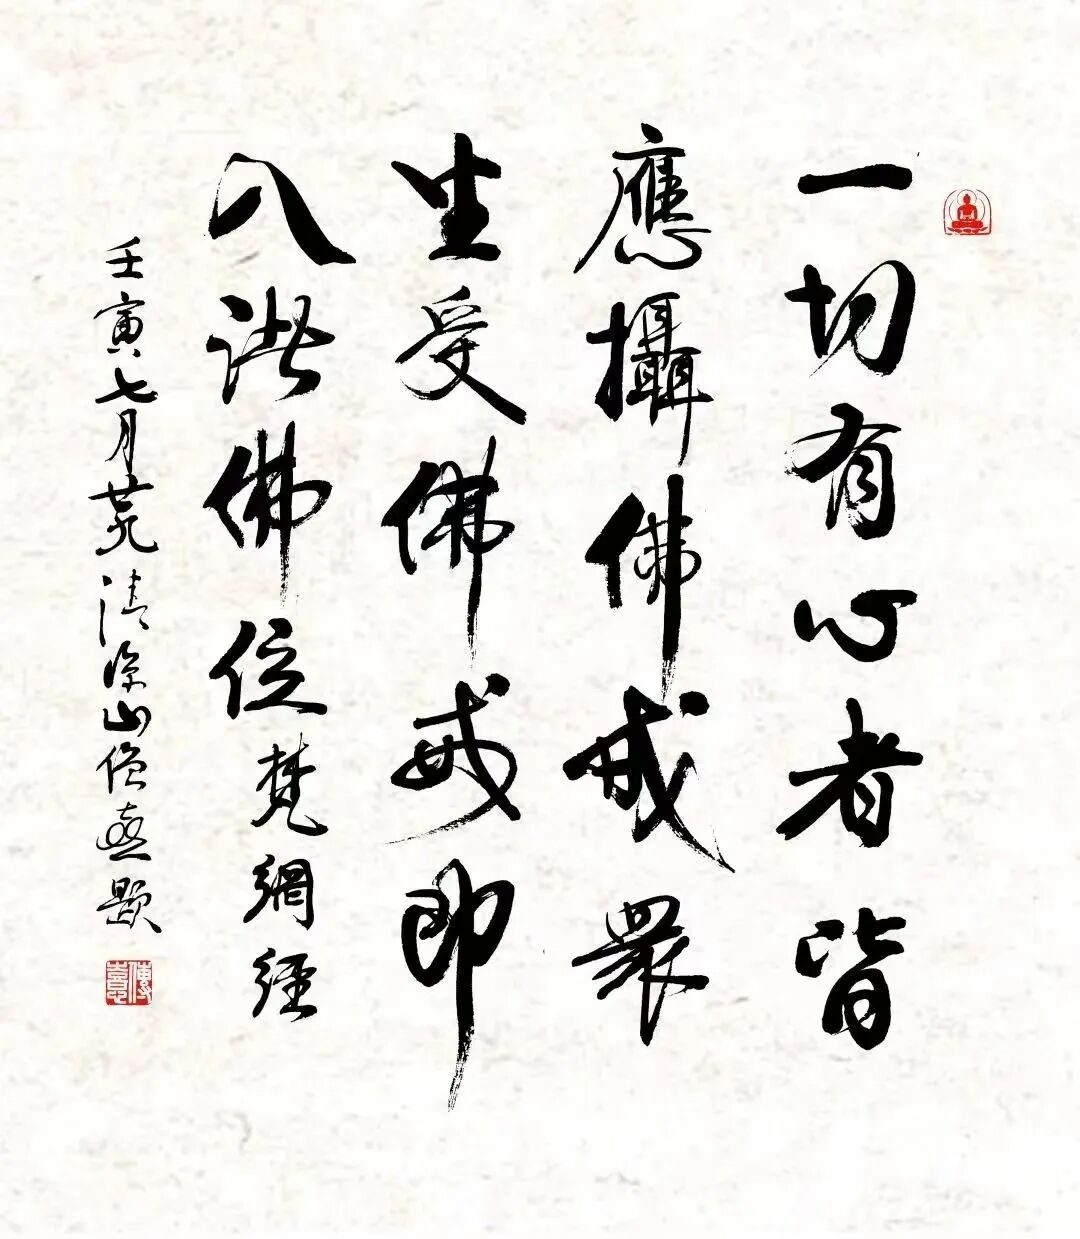 一切有心者皆
應攝佛戒眾
生受佛戒即
入諸佛位梵網經
壬寅七月清涼山僧憙題
傳憙